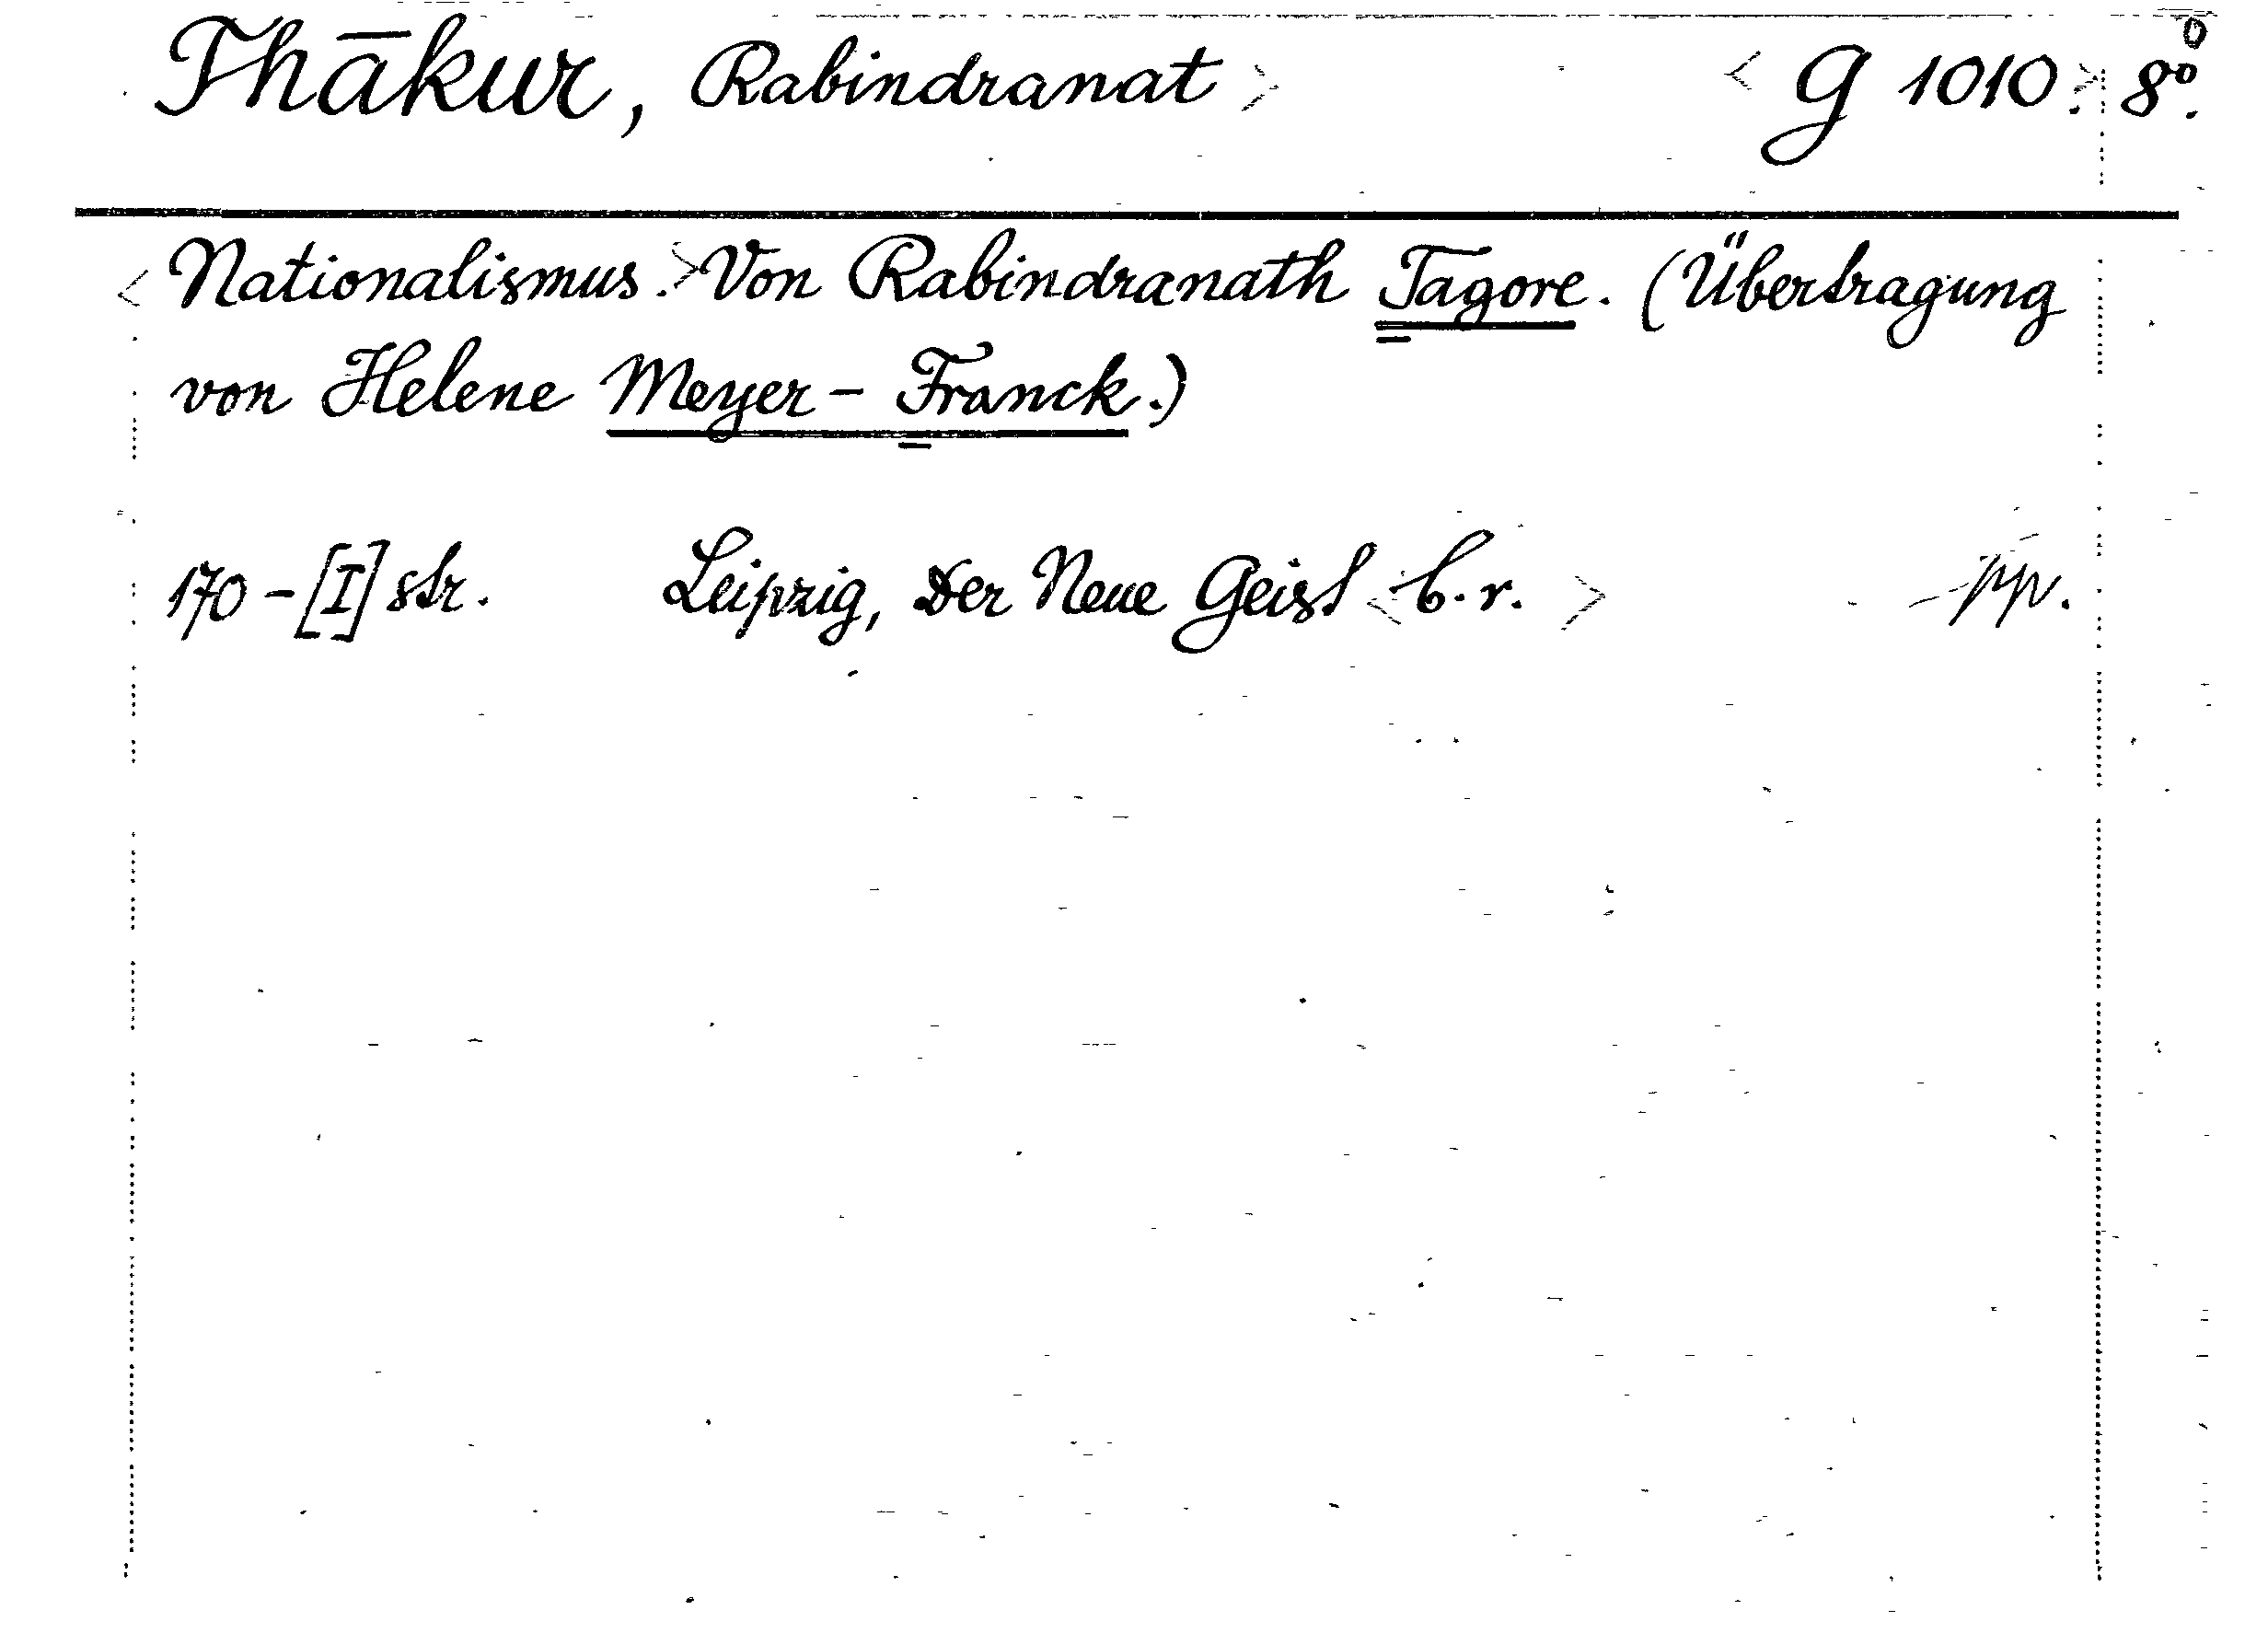 Thākur, Rabindranat > < G 1010. > 8º.
< Nationalismus. > Von Rabindranath Tagore. (Übertragung
von Helene Meyer-Franck.)
170-[I] str. Leipzig, Der Neue Geist < b.r. > pp.